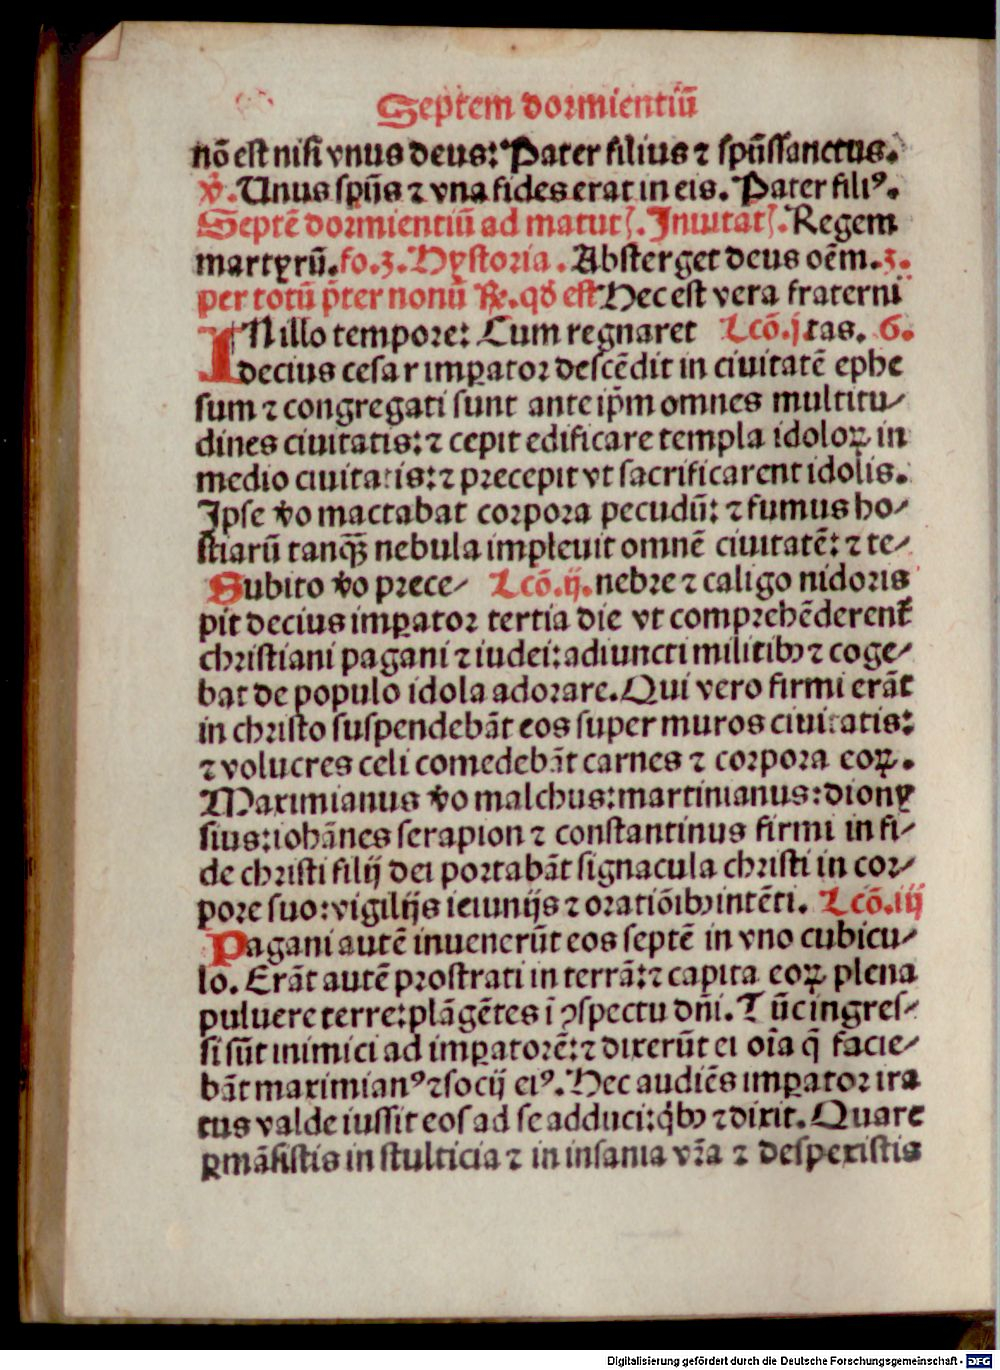 Septem dormientiū
nō est nisi vnus deus: Pater filius ⁊ spūssanctus.
℣. Unus spūs ⁊ vna fides erat in eis. Pater filiꝰ.
Septē dormientiū ad matut. Inuitat. Regem
martyrū. fo. 3. Hystoria. Absterget deus oēm. 3.
per totū p̄ter nonū ℞. qd̄ est Hec est vera fraterni
IN illo tempore: Cum regnaret Lcō. j. tas. 6.
decius cesar imꝑator descēdit in ciuitatē ephe
sum ⁊ congregati sunt ante ip̄m omnes multitu⸗
dines ciuitatis: ⁊ cepit edificare templa idoloꝝ in
medio ciuitatis: ⁊ precepit vt sacrificarent idolis.
Ipse v̄o mactabat corpora pecudū: ⁊ fumus ho⸗
stiarū tanqȝ̄ nebula impleuit omnē ciuitatē: ⁊ te⸗
Subito v̄o prece⸗ Lcō. ij. nebre ⁊ caligo nidoris
pit decius imꝑator tertia die vt comprehēderent̄
christiani pagani ⁊ iudei: adiuncti militibꝫ ⁊ coge⸗
bat de populo idola adorare. Qui vero firmi erāt
in christo suspendebāt eos super muros ciuitatis:
⁊ volucres celi comedebāt carnes ⁊ corpora eoꝝ.
Maximianus v̄o malchus: martinianus: diony
sius: iohānes serapion ⁊ constantinus firmi in fi⸗
de christi filij dei portabāt signacula christi in cor⸗
pore suo: vigilijs ieiunijs ⁊ oratiōibꝫ intēti. Lcō. iij
Pagani autē inuenerūt eos septē in vno cubicu⸗
lo. Erāt autē prostrati in terrā: ⁊ capita eoꝝ plena
puluere terre: plāgētes ī ꝯspectu dn̄i. Tūc ingres⸗
si sūt inimici ad imꝑatorē: ⁊ dixerūt ei oīa q̄ facie⸗
bāt maximianꝰ ⁊ socij eiꝰ. Hec audiēs imꝑator ira
tus valde iussit eos ad se adduci: q̇bꝫ ⁊ dixit. Quare
ꝑmāsistis in stulticia ⁊ in insania vr̄a ⁊ despexistis
Digitalisierung gefördert durch die Deutsche Forschungsgemeinschaft - DFG